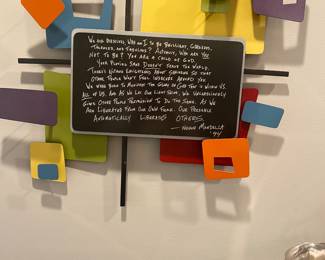 We Ask Ourselves, Who am I to be Brilliant, Gorgeous,
Talented, and Fabulous? Actually, Who are You
Not to be? You are a Child of God.
Your Playing Small Doesn't Serve the World.
There's Nothing Enlightened About Shrinking so that
Other People Won't Feel Insecure Around You.
We were Born to Manifest the Glory of God that is Within Us.
All of Us. And As We Let Our Light Shine, We Unconsciously
Give Other People Permission To Do The Same. As We
Are Liberated From Our Own Fear, Our Presence
Automatically Liberates Others.
— Nelson Mandella
'94